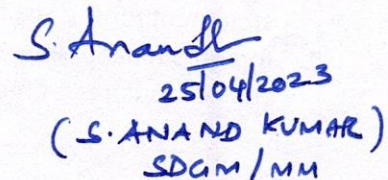 S. Anandh
25/04/2023
(S. ANAND KUMAR)
SDGM/MM